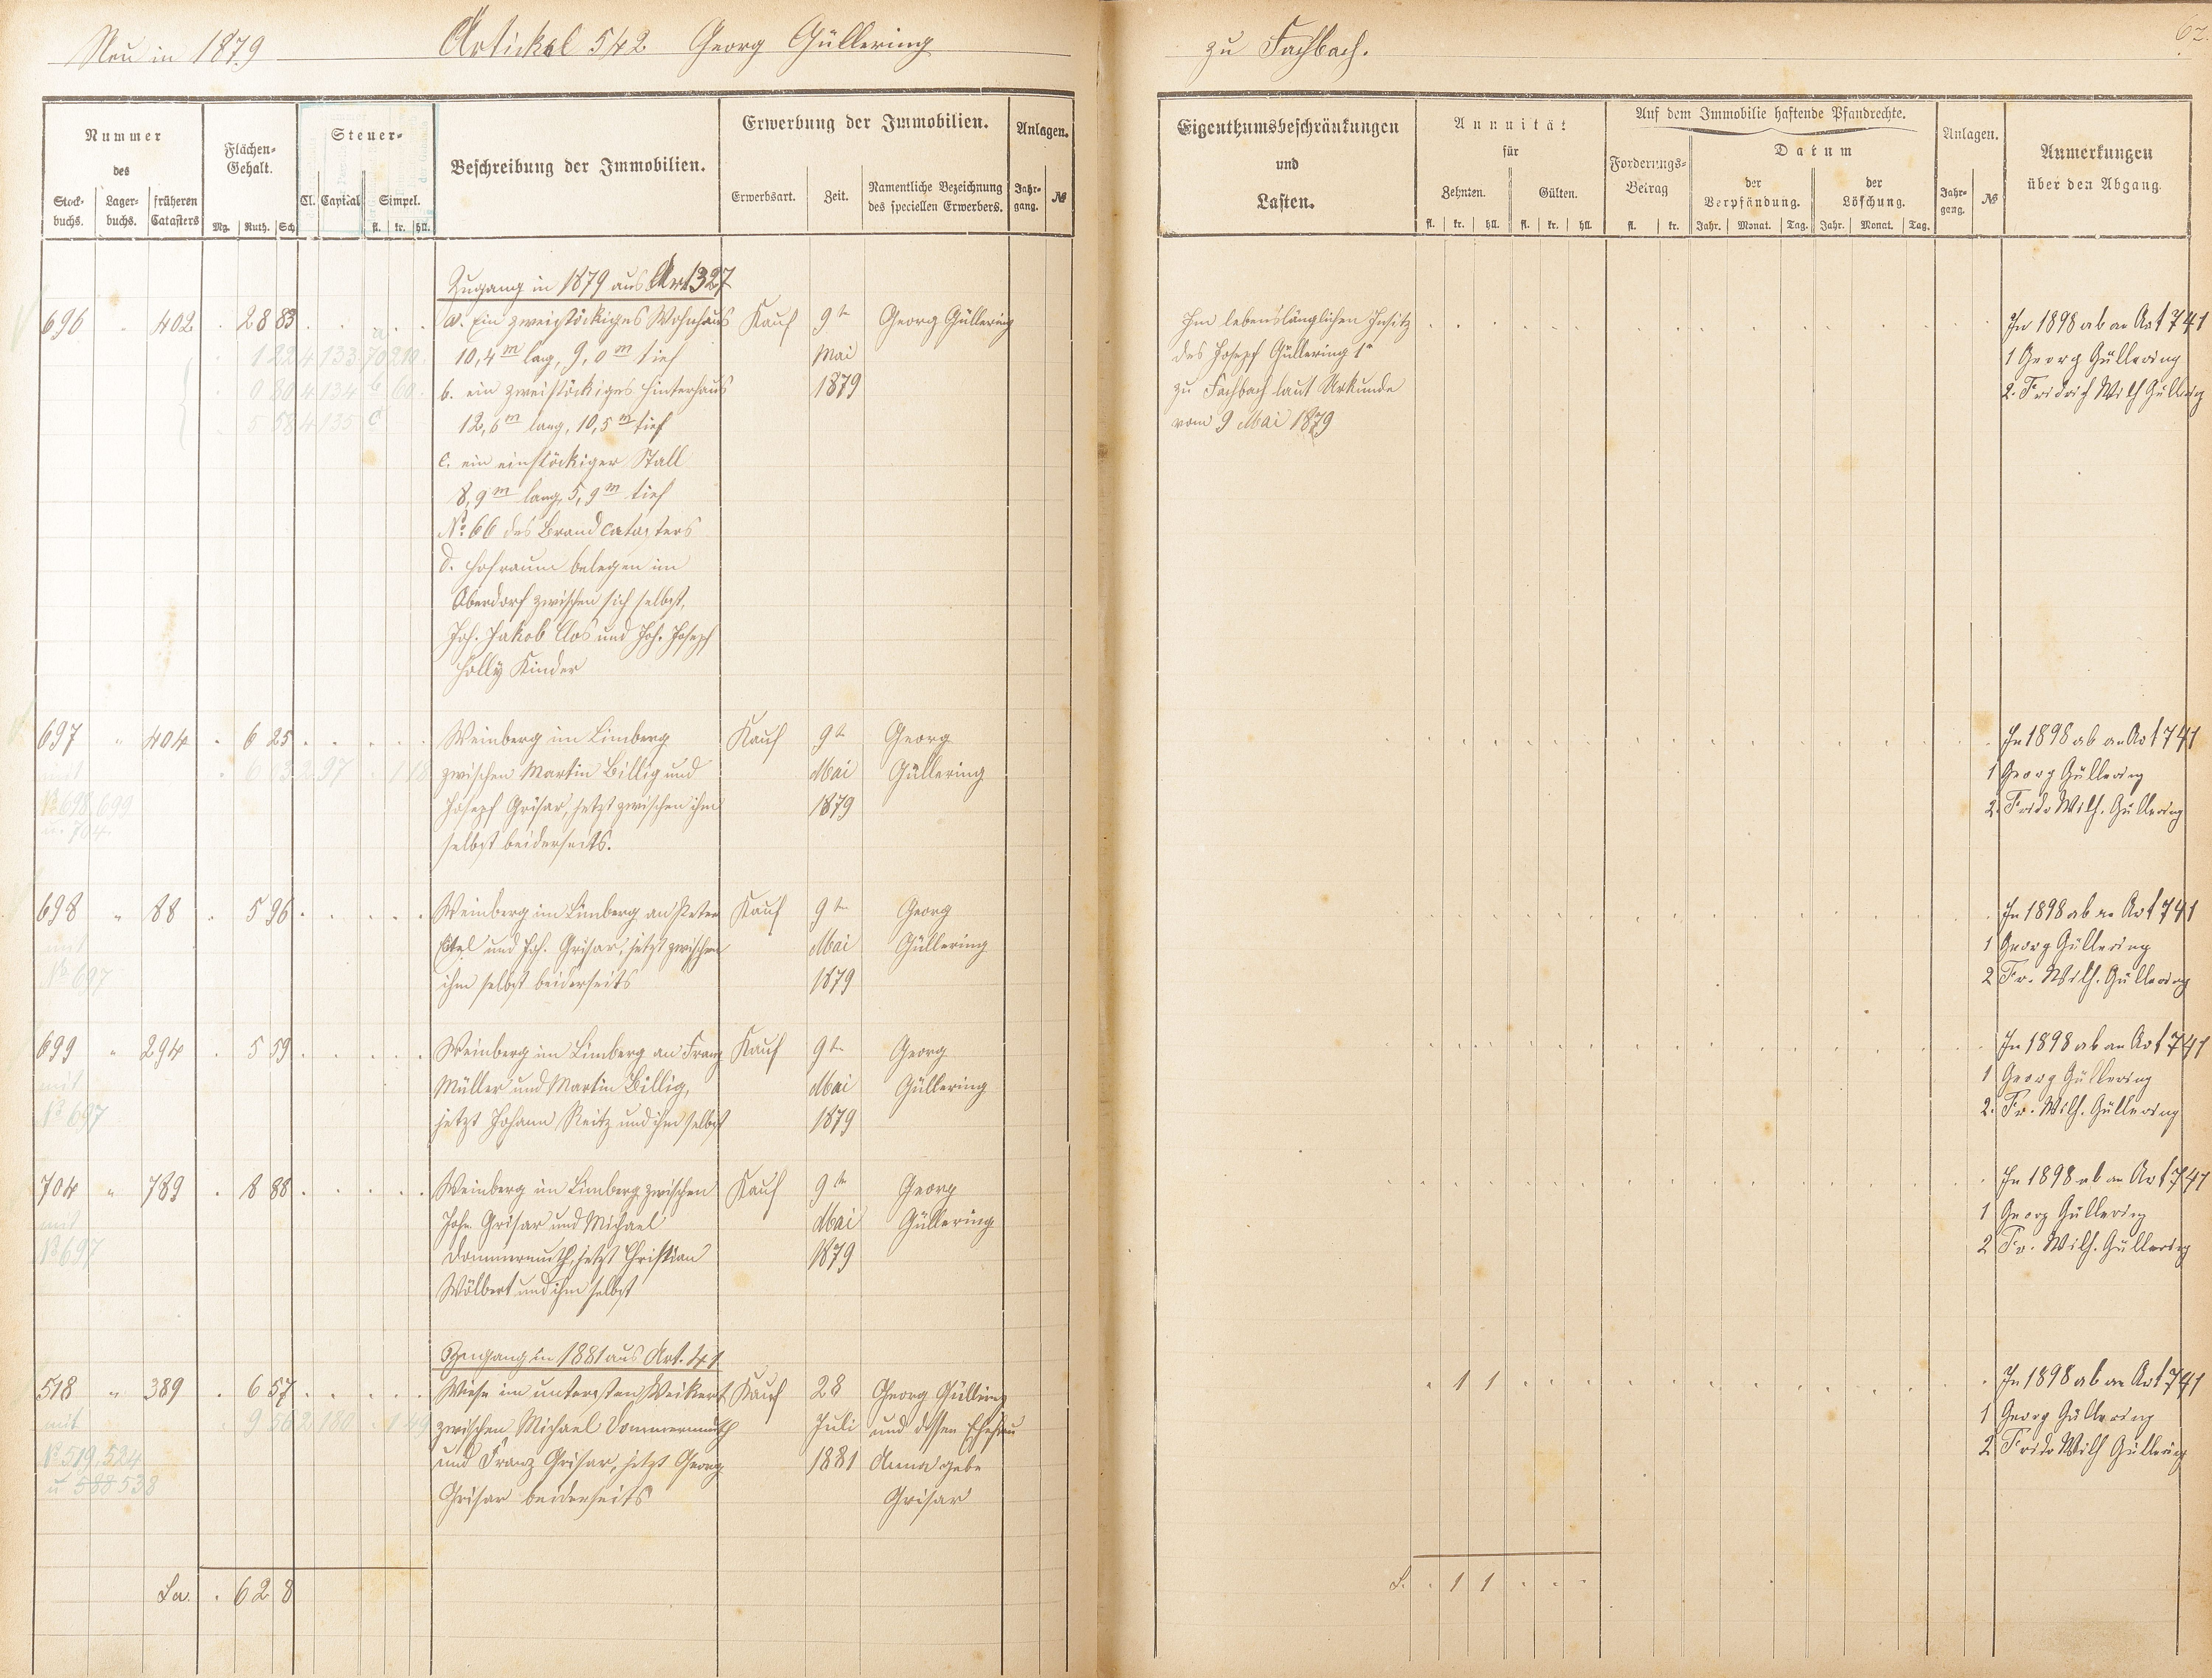 Neu in 1879 Artickel 542 Georg Güllering
zu Fachbach.
62.
Nummer
des
Stock-
buchs.
Lager-
buchs.
früheren
Catasters
Flächen-
Gehalt.
Mg. Ruth. Sch
Steuer-
Cl. Capital Simpel.
fl. kr. hll.
Beschreibung der Immobilien.
Erwerbung der Immobilien.
Erwerbsart. Zeit.
Namentliche Bezeichnung
des speciellen Erwerbers.
Anlagen.
Jahr-
gang.
№
Eigenthumsbeschränkungen
und
Lasten.
Annuität
für
Zehnten. Gülten.
fl. kr. hll. fl. kr. hll.
Auf dem Immobilie haftende Pfandrechte.
Forderungs-
Betrag
fl. kr.
Datum
der
Verpfändung.
der
Löschung.
Jahr. Monat. Tag. Jahr. Monat. Tag.
Anlagen.
Jahr-
gang.
№
Anmerkungen
über den Abgang.
Zugang in 1879 aus Art 327
696 " 402 . 28 83 a. Ein zweistöckiges Wohnhaus Kauf 9te Georg Güllering
1 22 4 133 a 70 2 10 10,4 m lang, 9,0 m tief Mai
9 80 4 134 b 60 b. ein zweistöckiges Hinterhaus 1879
5 58 4 135 c 12,6 m lang, 10,5 m tief
c. ein einstöckiger Stall
8,9 m lang, 5,9 m tief
No. 66 des Brandcatasters
d. Hofraum belegen im
Oberdorf zwischen sich selbst,
Joh. Jakob Clos und Joh. Joseph
Holly Kinder
Im lebenslänglichen Insitz
des Joseph Güllering 1r
zu Fachbach laut Urkunde
vom 9 Mai 1879
In 1898 ab an Art 741
1 Georg Güllering
2. Friedrich Wilh Güllering
697 " 404 . 6 25 Weinberg im Limberg Kauf 9te Georg
mit 6 13 2 97 1 18 zwischen Martin Billig und Mai Güllering
No 698, 699 Joseph Grisar, jetzt zwischen ihm 1879
u. 704 selbst beiderseits.
In 1898 ab an Art 741
1 Georg Güllering
2. Friedr Wilh. Güllering
698 " 88 . 5 96 Weinberg im Limberg an Peter Kauf 9te Georg
mit und Joh. Grisar, jetzt zwischen Mai Güllering
No 697 ihm selbst beiderseits 1879
In 1898 ab an Art 741
1 Georg Güllering
2 Fr. Wilh. Güllering
699 " 294 . 5 59 Weinberg im Limberg an Franz Kauf 9te Georg
mit Müller und Martin Billig, Mai Güllering
No 697 jetzt Johann Reitz und ihm selbst 1879
In 1898 ab an Art 741
1 Georg Güllering
2. Fr. Wilh. Güllering
704 " 789 . 8 88 Weinberg im Limberg zwischen Kauf 9te Georg
mit John. Grisar und Michael Mai Güllering
No 697 Dommermuth, jetzt Christian 1879
Wölbert und ihm selbst
In 1898 ab an Art 741
1 Georg Güllering
2 Fr. Wilh. Güllering
Zugang in 1881 aus Art. 41
518 " 389 . 6 57 Wiese im untersten Weikert Kauf 28 Georg Güllering
mit 9 56 2 180 1 49 zwischen Michael Dommermuth Juli und dessen Ehefrau
No 519, 524 und Franz Grisar, jetzt Georg 1881 Anna gebe
u 588 538 Grisar beiderseits Grisar
. 1 1
In 1898 ab an Art 741
1 Georg Güllering
2 Friedr Wilh Güllering
Sa. . 62 8
S. . 1 1